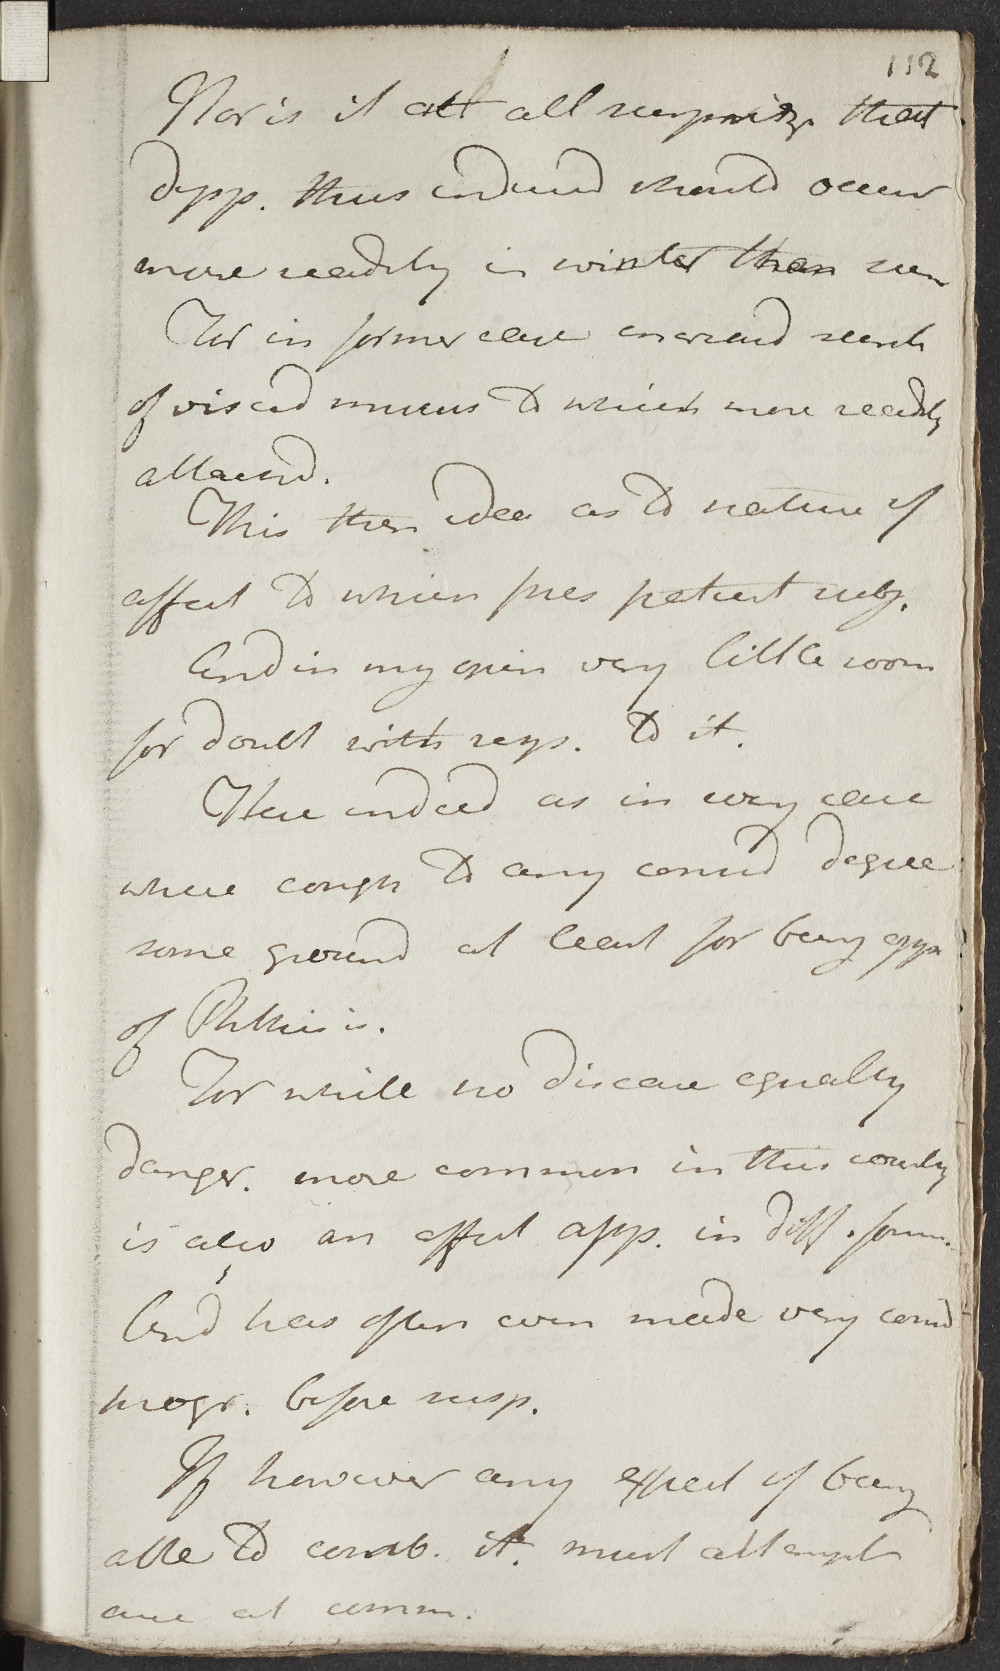 112
Nor is it at all surprisg. that
dypp. thus induced should occur
more readily in winter than sum
For in former case increased secret.
of viscid mucus to which more readily
allowed.
This then idea as to nature of
affect to which pres patient subj.
And in my opin very little room
for doubt with resp. to it.
Here indeed as in every case
where cough to any consid degree
some ground at least for being appr
of Phthisis.
For while no disease equally
danger. more common in this country
is also an affect app. in diff. forms.
And has often even made very consid
progr. before susp.
If however any expect of being
able to comb. it. must attempt
cure at comm.